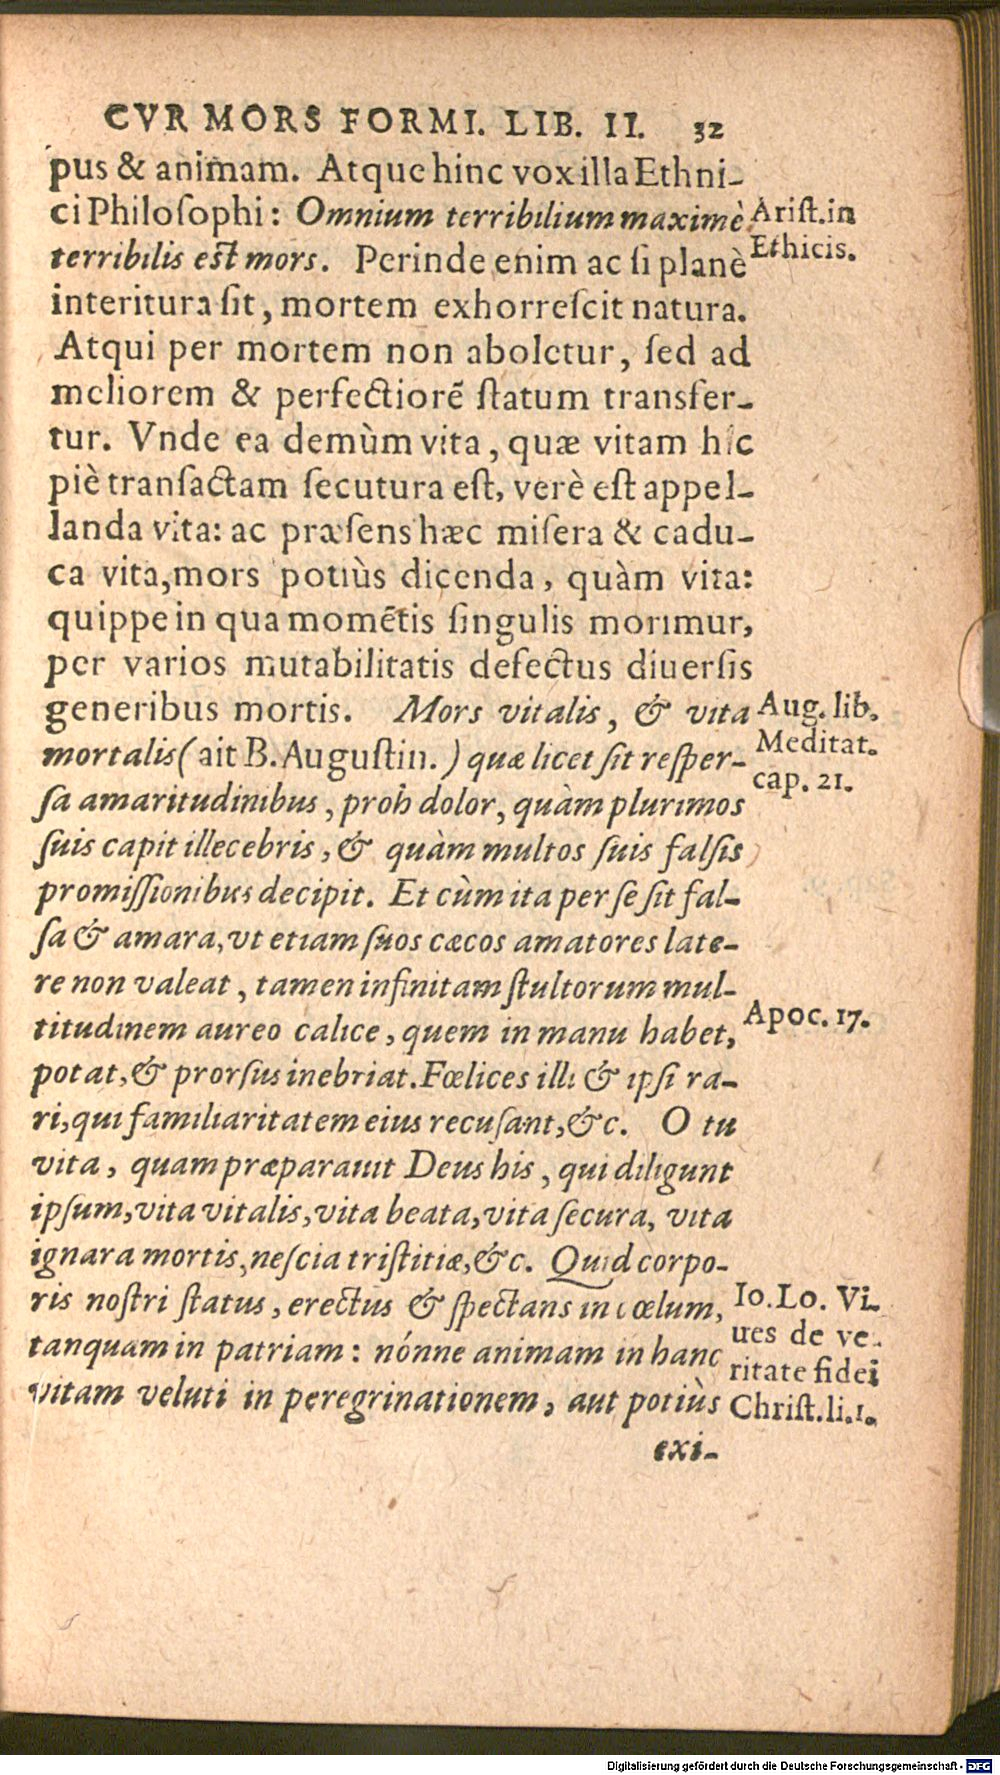 CVR MORS FORMI. LIB. II. 32
pus & animam. Atque hinc vox illa Ethni-
ci Philoſophi: Omnium terribilium maximè
Ariſt. in
terribilis eſt mors. Perinde enim ac ſi planè
Ethicis.
interitura ſit, mortem exhorreſcit natura.
Atqui per mortem non aboletur, ſed ad
meliorem & perfectiorẽ ſtatum transfer-
tur. Vnde ea demùm vita, quæ vitam hic
piè transactam ſecutura eſt, verè eſt appel-
landa vita: ac præſens hæc miſera & cadu-
ca vita, mors potiùs dicenda, quàm vita:
quippe in qua momẽtis ſingulis morimur,
per varios mutabilitatis defectus diuerſis
generibus mortis. Mors vitalis, & vita
Aug. lib.
mortalis (ait B. Auguſtin.) quæ licet ſit reſper-
Meditat.
cap. 21.
ſa amaritudinibus, proh dolor, quàm plurimos
ſuis capit illecebris, & quàm multos ſuis falſis
promiſſionibus decipit. Et cùm ita per ſe ſit fal-
ſa & amara, vt etiam ſuos cæcos amatores late-
re non valeat, tamen infinitam ſtultorum mul-
titudinem aureo calice, quem in manu habet,
Apoc. 17.
potat, & prorſus inebriat. Fœlices illi & ipſi ra-
ri, qui familiaritatem eius recuſant, &c. O tu
vita, quam præparauit Deus his, qui diligunt
ipſum, vita vitalis, vita beata, vita ſecura, vita
ignara mortis, neſcia triſtitiæ, &c. Quid corpo-
ris noſtri ſtatus, erectus & ſpectans in cœlum,
Io. Lo. Vi-
ues de ve-
tanquam in patriam: nónne animam in hanc
ritate fidei
vitam veluti in peregrinationem, aut potiùs
Chriſt. li. 1.
exi-
Digitalisierung gefördert durch die Deutsche Forschungsgemeinschaft - DFG